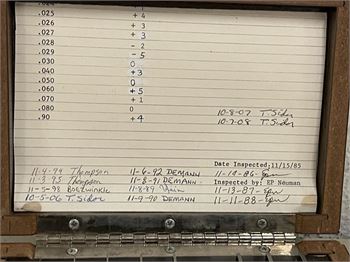 .025 + 4
.026 + 3
.027 + 3
.028 - 2
.029 - 5
.030 0
.040 +3
.050 0
.060 +5
.070 +1
.080 0
.90 +4
10-8-07 T. Sidor
10-7-08 T. Sidor
Date Inspected;11/15/85
11-4-94 Thompson 11-6-92 DEMANN 11-19-86
11-3-95 Thompson 11-8-91 DEMANN Inspected by: EP Neuman
11-5-98 11-8-89 11-13-87
10-5-06 T. Sidor 11-9-90 DEMANN 11-11-88